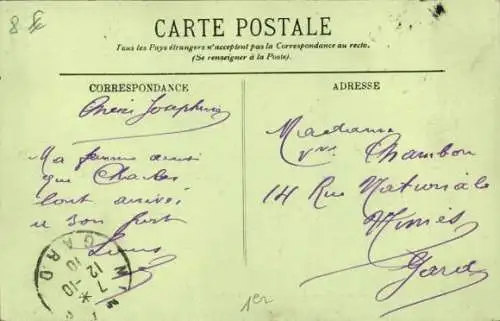 8 fr
CARTE POSTALE
Tous les Pays étrangers n'acceptent pas la Correspondance au recto.
(Se renseigner à la Poste).
CORRESPONDANCE
ADRESSE
Joséphine
Ma femme ainsi
que Charles
sont arrivés
à bon port
Louis
Madame
Vve Chambon
14 Rue Nationale
Nimes
Gard
GARD
7-10
12
10
1er